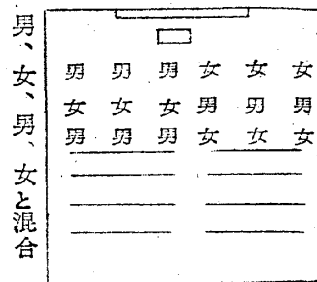 男、女、男、女と混合
男 男 男 女 女 女
女 女 女 男 男 男
男 男 男 女 女 女